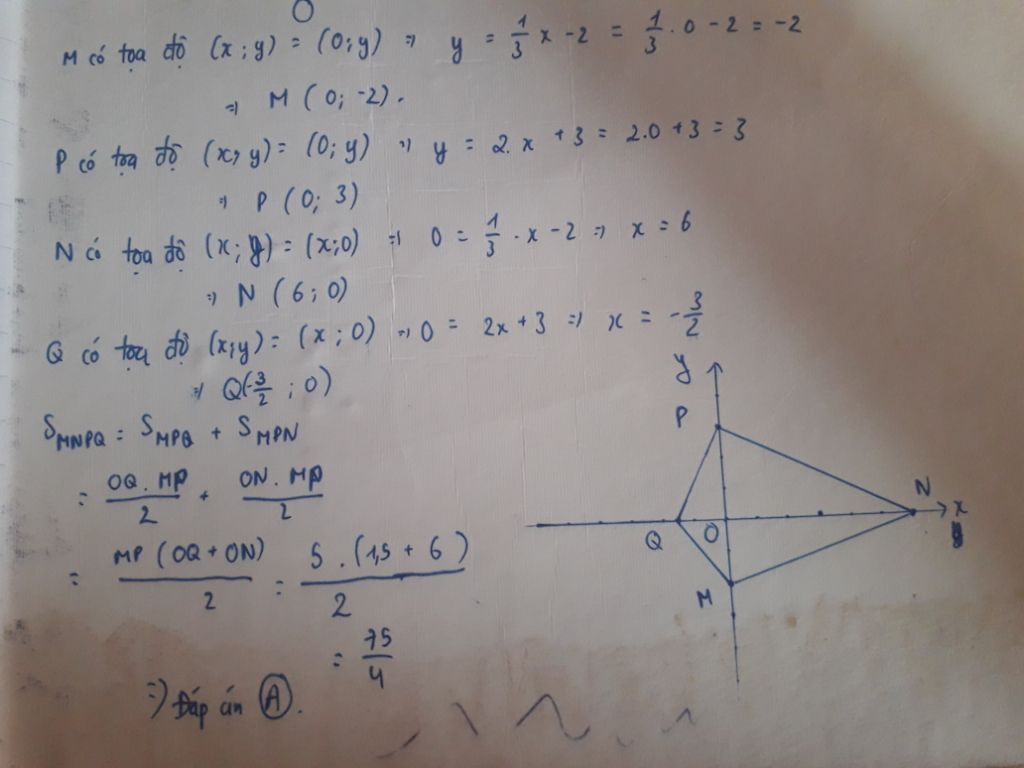 M có tọa độ (x ; y) = (0; y) ⇒ y = 1/3 x - 2 = 1/3 . 0 - 2 = -2
⇒ M ( 0; -2).
P có tọa độ (x; y) = (0; y) ⇒ y = 2. x + 3 = 2.0 + 3 = 3
⇒ P ( 0; 3)
N có tọa độ (x; y) = (x;0) ⇒ 0 = 1/3 . x - 2 ⇒ x = 6
⇒ N ( 6; 0)
Q có tọa độ (x;y) = (x ; 0) ⇒ 0 = 2x + 3 ⇒ x = -3/2
⇒ Q(-3/2 ; 0)
S_MNPQ = S_MPQ + S_MPN
= OQ . MP / 2 + ON . MP / 2
= MP (OQ + ON) / 2 = 5 . (1,5 + 6) / 2
= 75/4
⇒ Đáp án A.
y
P
N
x
Q
O
M